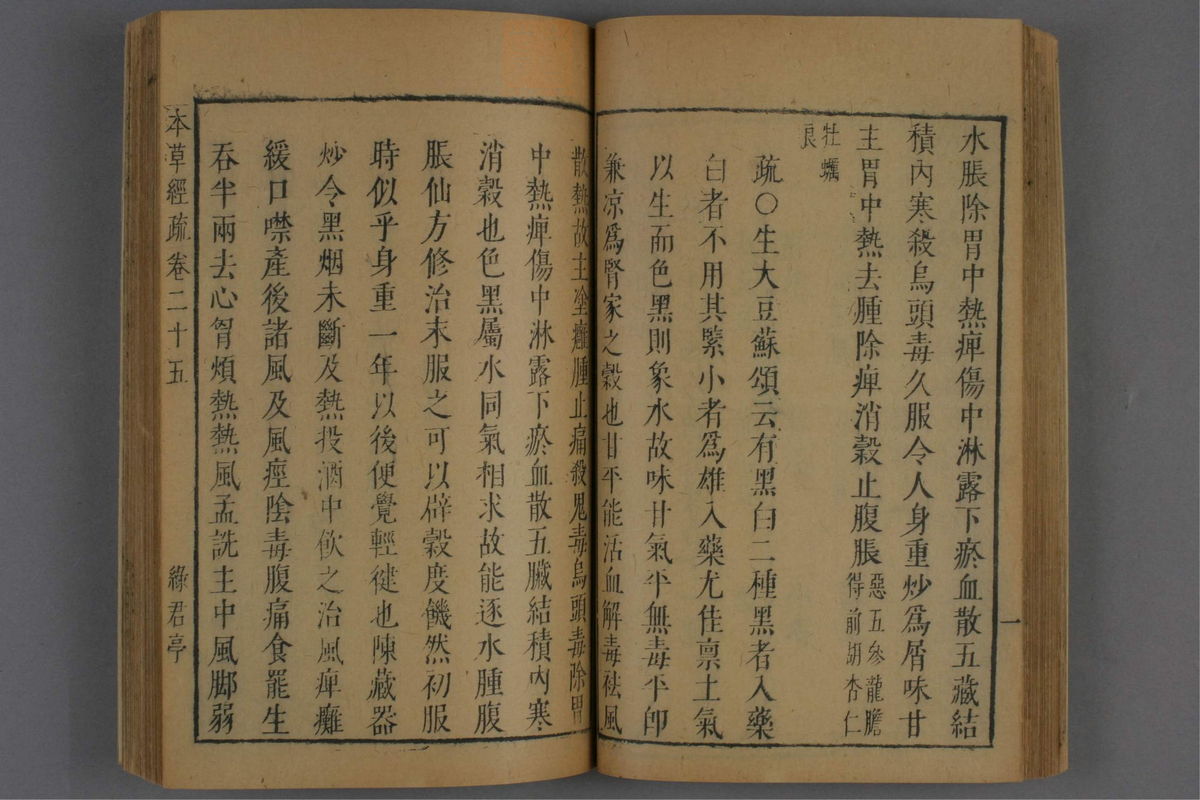 水脹除胃中熱痺傷中淋露下瘀血散五藏結
積內寒殺烏頭毒久服令人身重炒爲屑味甘
主胃中熱去腫除痺消穀止腹脹惡五參龍膽得前胡杏仁
牡蠣良
疏○生大豆蘇頌云有黑白二種黑者入藥
白者不用其緊小者爲雄入藥尤佳禀土氣
以生而色黑則象水故味甘氣平無毒平卽
兼凉爲腎家之穀也甘平能活血解毒袪風
一
散熱故主塗癰腫止痛殺鬼毒烏頭毒除胃
中熱痺傷中淋露下瘀血散五臟結積內寒
消穀也色黑屬水同氣相求故能逐水腫腹
脹仙方修治末服之可以辟穀度饑然初服
時似乎身重一年以後便覺輕徤也陳藏器
炒令黑烟未斷及熱投酒中飮之治風痺癱
緩口噤產後諸風及風痙陰毒腹痛食罷生
吞半兩去心胷煩熱熱風孟詵主中風脚弱
本草經疏卷二十五
綠君亭